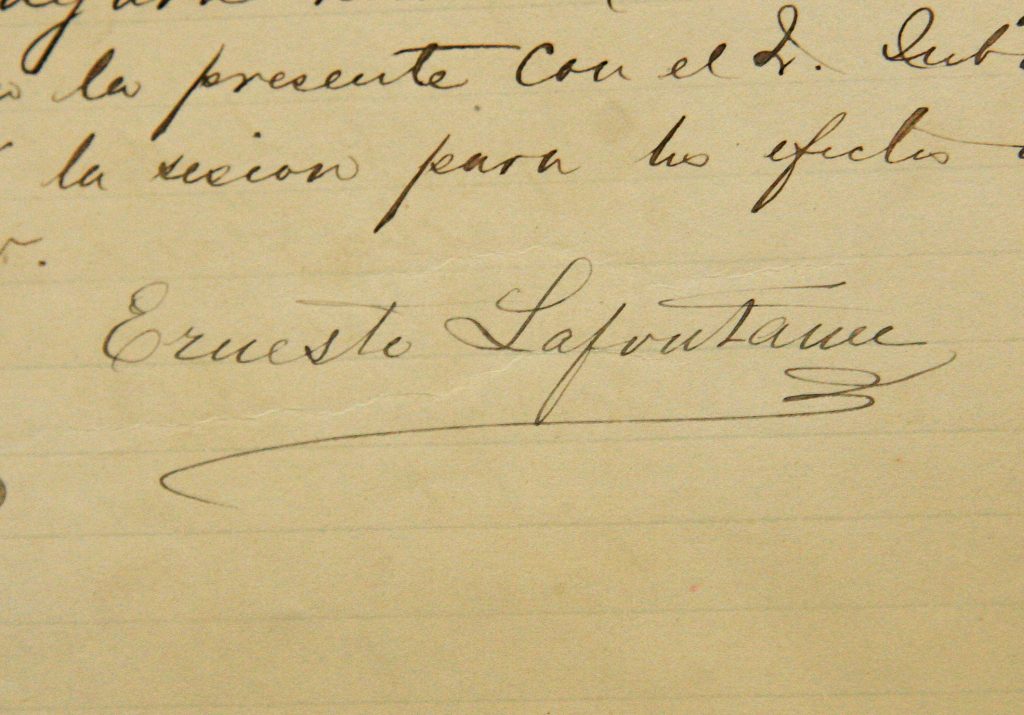 la presente con el Sr. Sub
la sesion para los efectos
r.
Ernesto Lafontaine